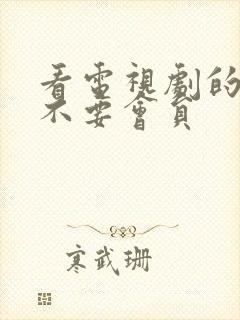 看電視劇的
不要會員
寒武珊